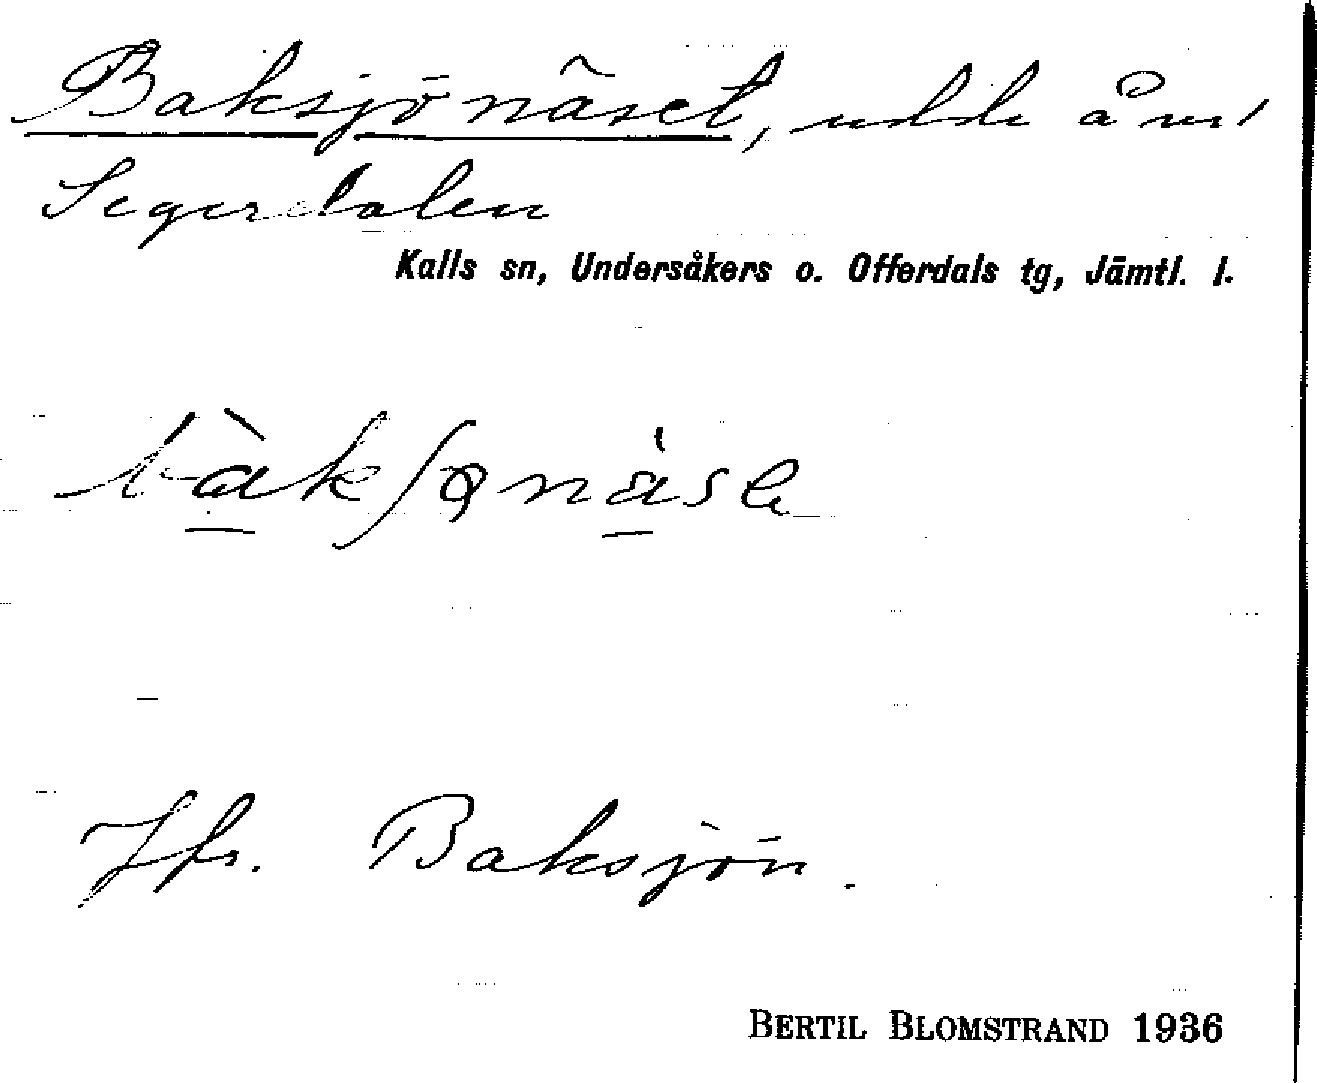 Baksjönäset, udde å nv
Segerdalen
Kalls sn, Undersåkers o. Offerdals tg, Jämtl. l.
Jfr. Baksjön.
BERTIL BLOMSTRAND 1936